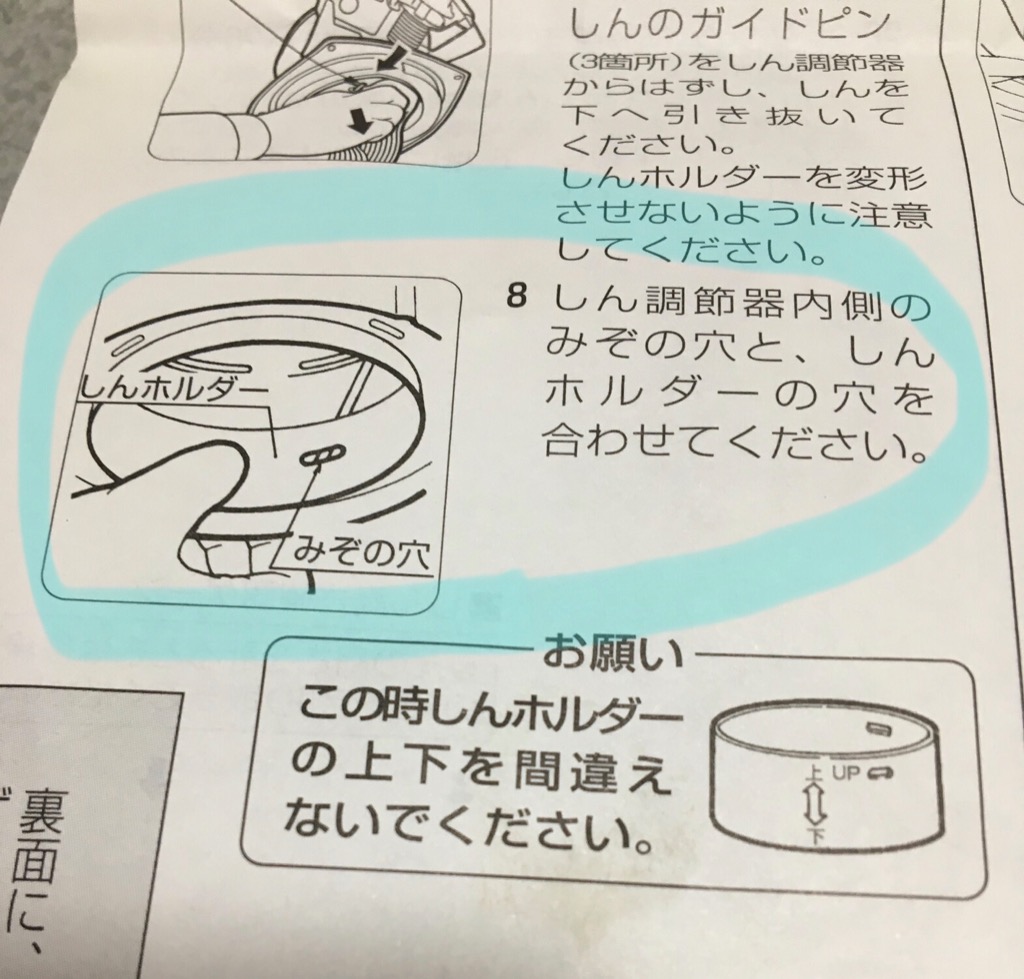 しんのガイドピン
(3箇所)をしん調節器
からはずし、しんを
下へ引き抜いて
ください。
しんホルダーを変形
させないように注意
してください。
しんホルダー
みぞの穴
8 しん調節器内側の
みぞの穴と、しん
ホルダーの穴を
合わせてください。
お願い
この時しんホルダー
の上下を間違え
ないでください。
上 UP
下
裏面に、